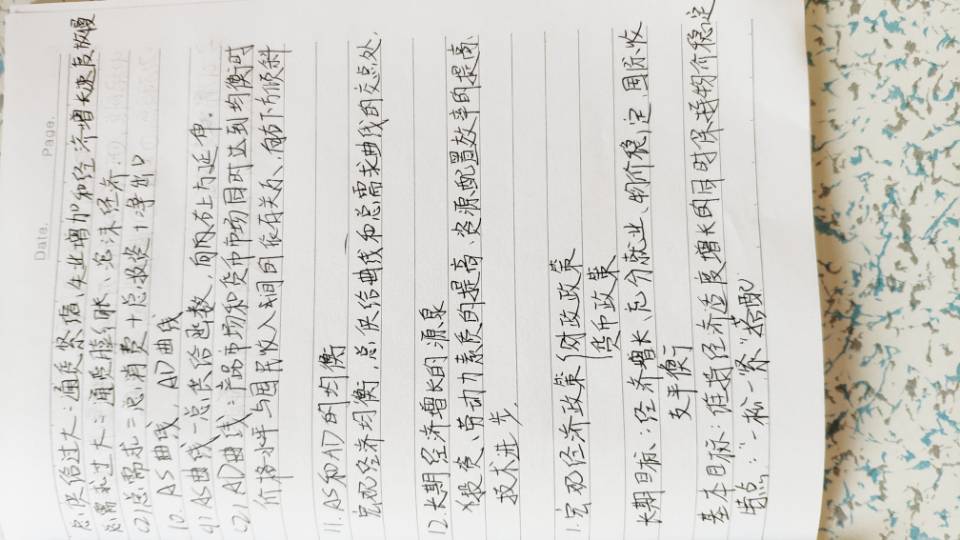 Data. Page.
总供给过大：通货紧缩、失业增加和经济增长速度放慢
总需求过大：通货膨胀、泡沫经济
(2)总需求=总消费+总投资+净出口
10. AS曲线、AD曲线
(1) AS曲线—总供给函数，向右上方延伸。
(2) AD曲线：产品市场和货币市场同时达到均衡时
价格水平与国民收入间的依存关系、向右下方倾斜
11. AS和AD的均衡
宏观经济均衡，总供给曲线和总需求曲线的交点处.
12. 长期经济增长的源泉
投资、劳动力素质的提高、资源配置效率的提高、
技术进步.
1. 宏观经济政策{财政政策
货币政策
长期目标：经济增长、充分就业、物价稳定、国际收
支平衡
基本目标：保持经济适度增长的同时保持物价稳定
特点：“一松一紧”搭配